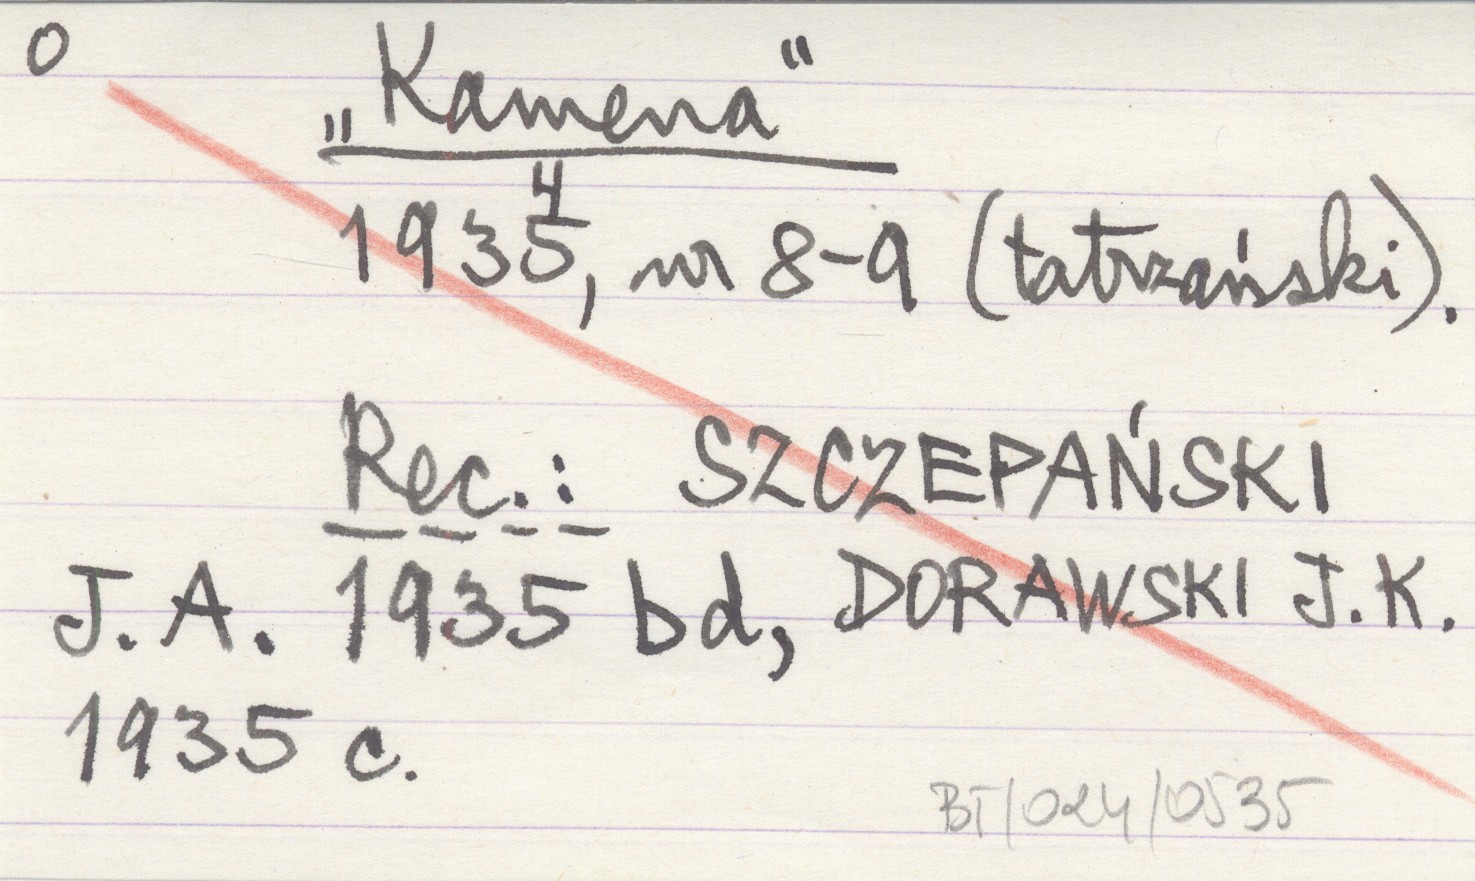 O
„Kamena"
4
1935, nr 8-9 (tatrzański).
Rec.: SZCZEPAŃSKI
J.A. 1935 bd, DORAWSKI J.K.
1935 c.
BT/024/0535